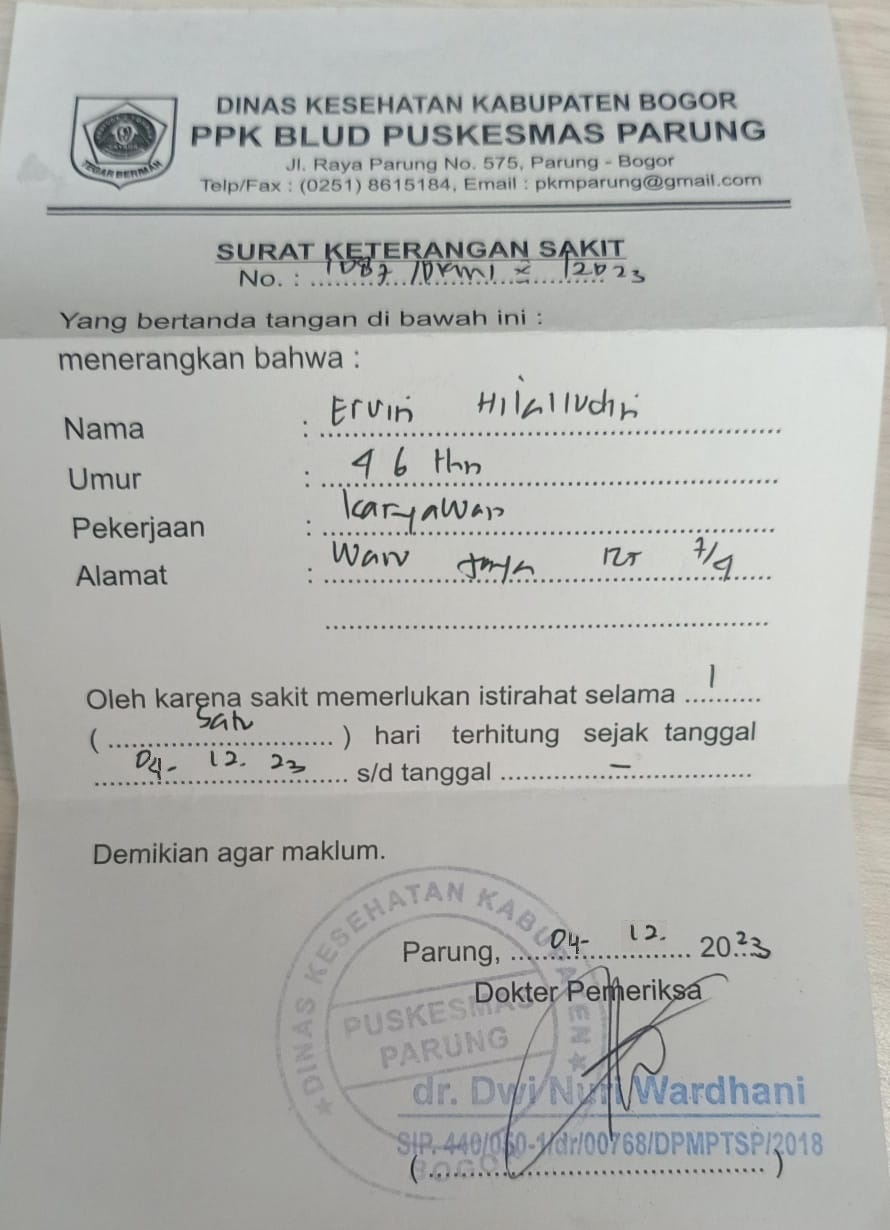 DINAS KESEHATAN KABUPATEN BOGOR
PPK BLUD PUSKESMAS PARUNG
Jl. Raya Parung No. 575, Parung - Bogor
Telp/Fax : (0251) 8615184, Email : pkmparung@gmail.com
TEGAR BERIMAN
SURAT KETERANGAN SAKIT
No. : 1087 / 2023
Yang bertanda tangan di bawah ini :
menerangkan bahwa :
Nama : Ervin
Umur : 46 thn
Pekerjaan : Karyawan
Alamat : Waru Jaya RT 7/9
Oleh karena sakit memerlukan istirahat selama 1
( satu ) hari terhitung sejak tanggal
04- 12. 23 s/d tanggal –
Demikian agar maklum.
Parung, 04- 12. 2023
Dokter Pemeriksa
DINAS KESEHATAN KABUPATEN
PUSKESMAS
PARUNG
BOGOR
dr. Dwi Nuri Wardhani
SIP. 440/050-1/dr/00768/DPMPTSP/2018
( )